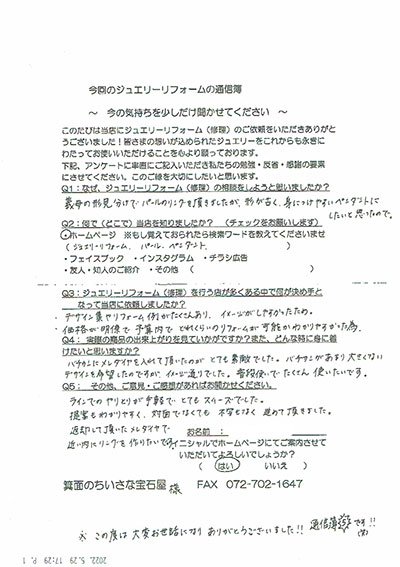 今回のジュエリーリフォームの通信簿
～ 今の気持ちを少しだけ聞かせてください ～
このたびは当店にジュエリーリフォーム（修理）のご依頼をいただきありがと
うございました！皆さまの想いが込められたジュエリーをこれからも永きに
わたってお使いいただけることを心より願っております。
下記、アンケートに率直にご記入いただき私たちの勉強・反省・感謝の要素
にさせてください。このご縁を大切にしたいと思います。
Q1：なぜ、ジュエリーリフォーム（修理）の相談をしようと思いましたか？
義母の形見分けで パールのリングを頂きましたが、形が古く、身につけやすいペンダントに
したいと思ったので。
Q2：何で（どこで）当店を知りましたか？ （チェックをお願いします）
・ホームページ ※もし覚えておられたら検索ワードを教えてくださいませ
（ジュエリーリフォーム、パール、ペンダント ）
・フェイスブック ・インスタグラム ・チラシ広告
・友人・知人のご紹介 ・その他（ ）
Q3：ジュエリーリフォーム（修理）を行う店が多くある中で何が決め手と
なって当店に依頼しましたか？
・デザイン集やリフォーム例がたくさんあり、イメージがしやすかったため。
・価格が明確で予算内で どれくらいのリフォームが可能かわかりやすかった為。
Q4： 実際の商品の出来上がりを見ていかがですか？また、どんな時に身に着
けたいと思いますか？
バチカンにメレダイヤを入れて頂いたのが とても素敵でした。バチカンがあまり大きくない
デザインを希望したのですが、イメージ通りでした。普段使いで たくさん 使いたいです。
Q5： その他、ご意見・ご感想があればお聞かせください。
ラインでのやりとりが手軽で とても スムーズでした。
提案もわかりやすく、対面でなくても 不安もなく 進めて頂きました。
返却して頂いたメレダイヤで
近い内にリングを作りたいです。
お名前：
イニシャルでホームページにてご案内させて
いただいてよろしいでしょうか？
（ はい いいえ ）
箕面のちいさな宝石屋 様 FAX 072-702-1647
※ この度は 大変お世話になり ありがとうございました！！ 通信簿 です！！
2022. 5.29 17:29 P. 1